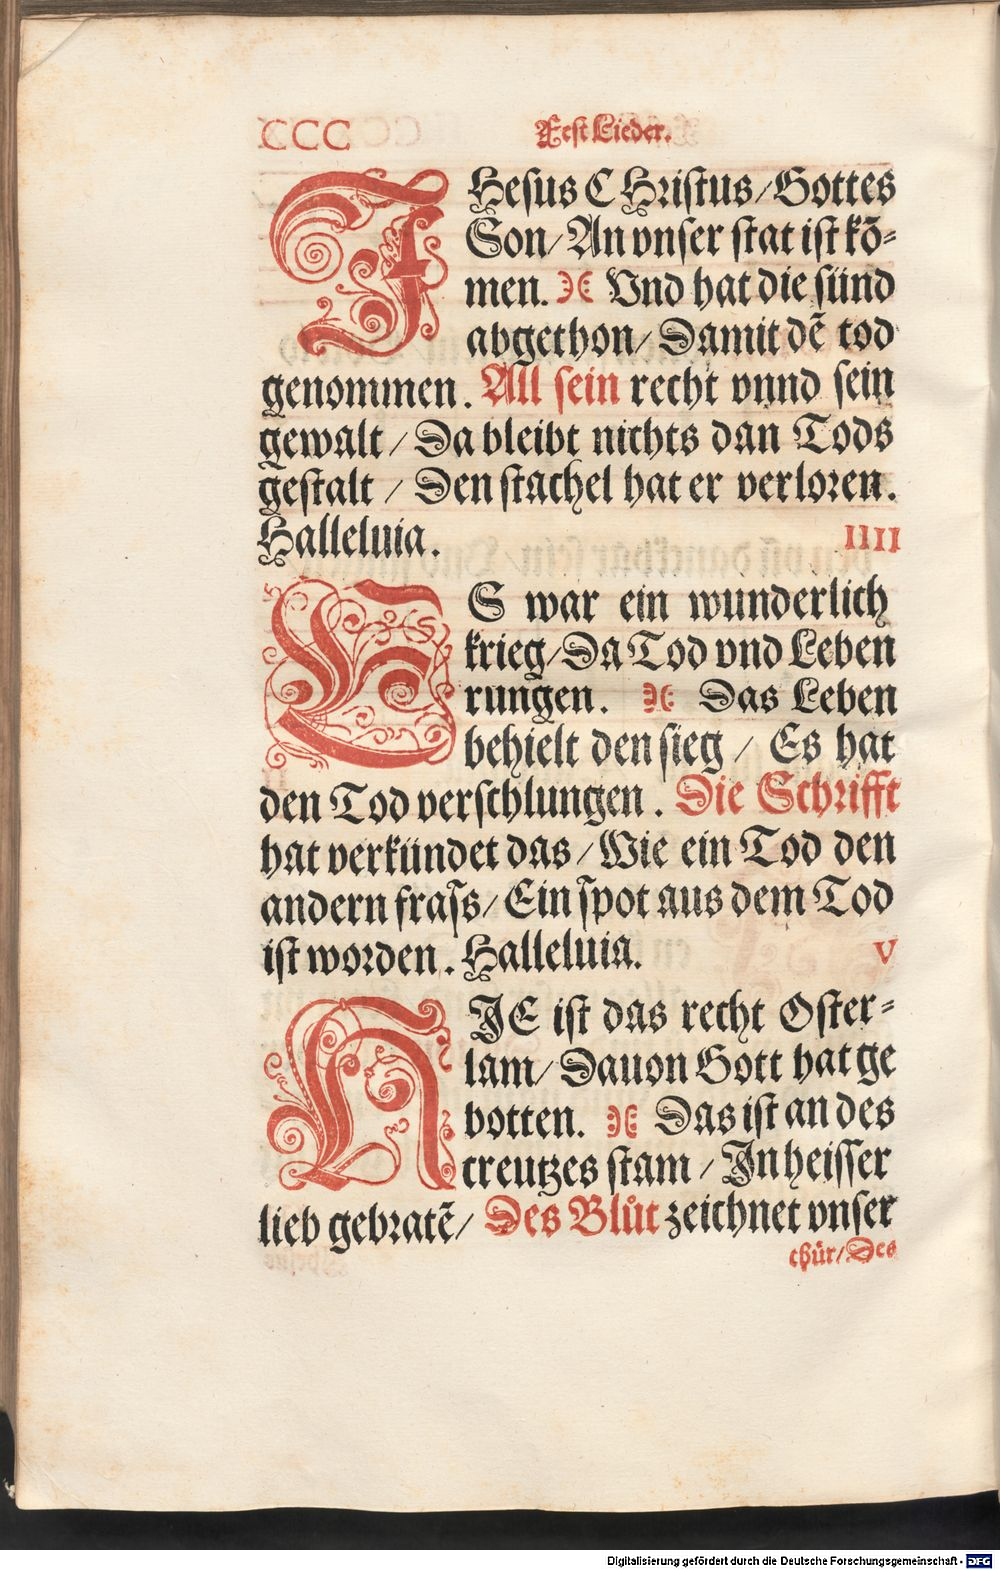 CCC Fest Lieder.
JHesus CHristus/Gottes
Son/An vnser stat ist kō-
men. Vnd hat die sünd
abgethon/Damit dē tod
genommen. All sein recht vnnd sein
gewalt/Da bleibt nichts dan Tods
gestalt/Den stachel hat er verloren.
Halleluia. IIII
ES war ein wunderlich
krieg/Da Tod vnd Leben
rungen. Das Leben
behielt den sieg/Es hat
den Tod verschlungen. Die Schrifft
hat verkündet das/Wie ein Tod den
andern frass/Ein spot aus dem Tod
ist worden. Halleluia. V
HJE ist das recht Oster-
lam/Dauon Gott hat ge
botten. Das ist an des
creutzes stam/Jn heisser
lieb gebratē/Des Blůt zeichnet vnser
thür/Des
Digitalisierung gefördert durch die Deutsche Forschungsgemeinschaft - DFG